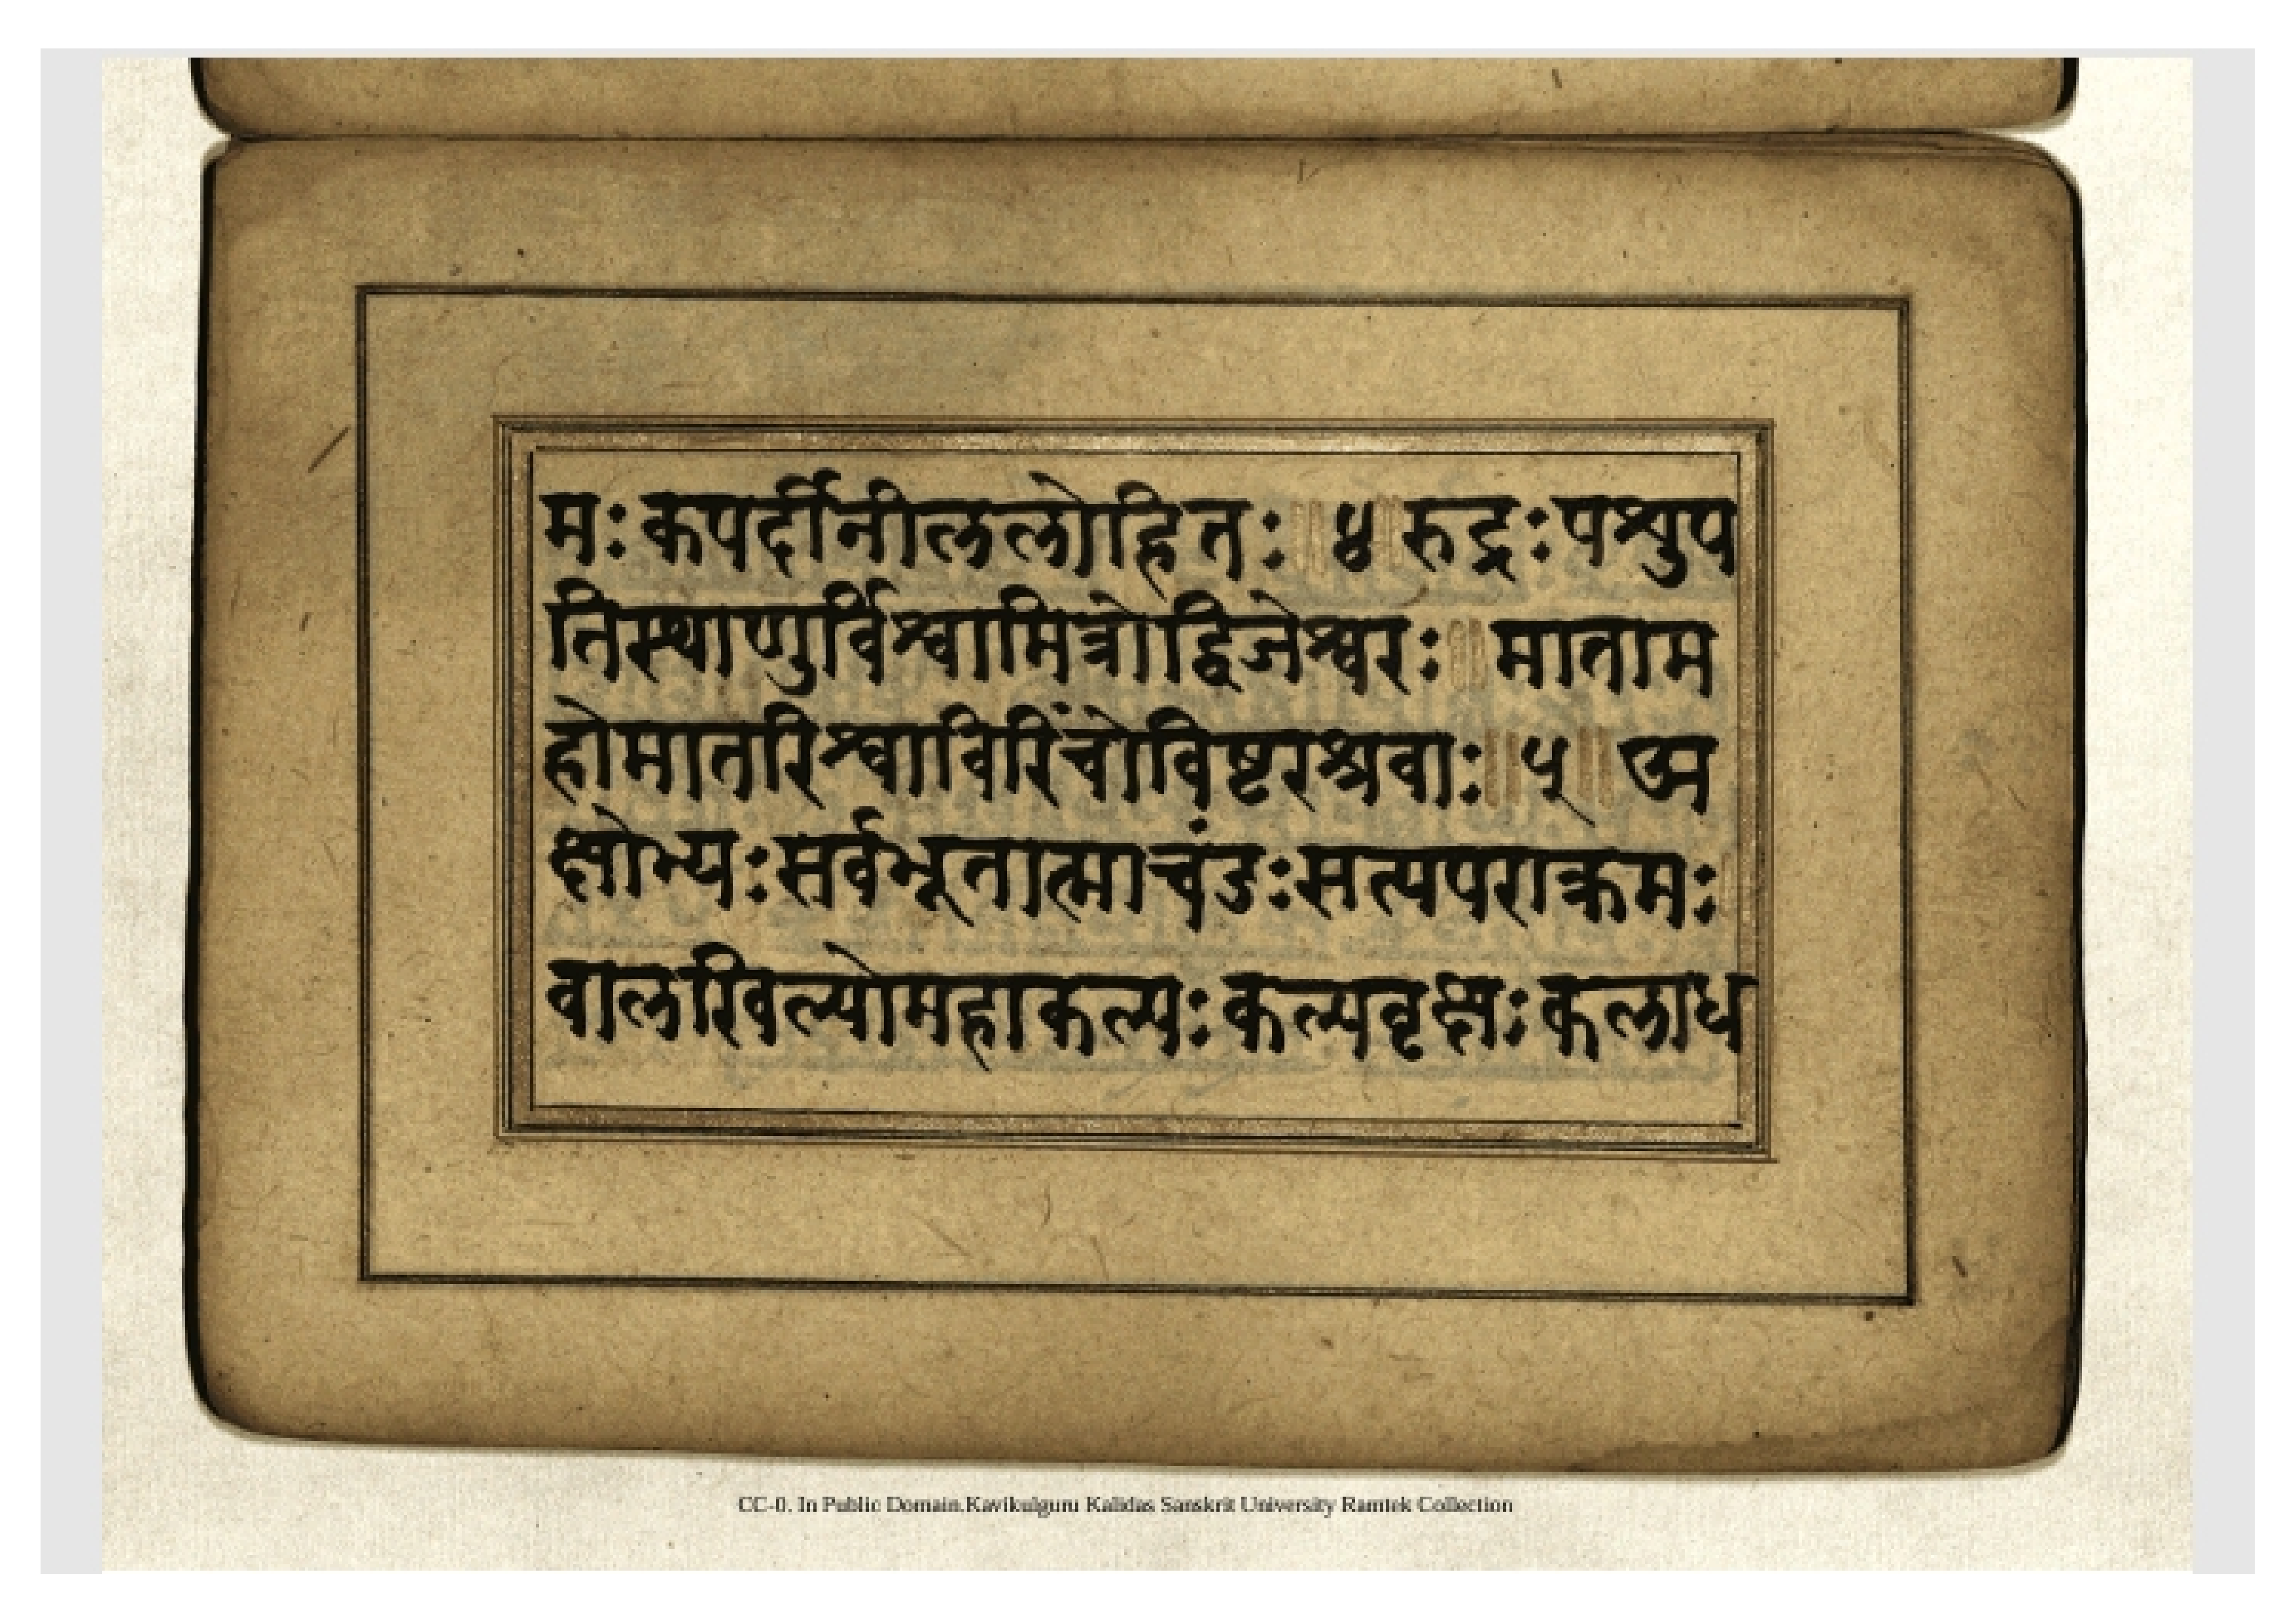 मः कपर्दी नीललोहितः ॥ ४ ॥ रुद्रः पशुप
तिस्थाणुर्विश्वामित्रो द्विजेश्वरः ॥ माताम
हो मातरिश्वा विरिंचो विष्टरश्रवाः ॥ ५ ॥ अ
क्षोभ्यः सर्वभूतात्मा चंडः सत्यपराक्रमः ।
वालखिल्यो महाकल्पः कल्पवृक्षः कलाध
CC-0. In Public Domain.Kavikulguru Kalidas Sanskrit University Ramtek Collection